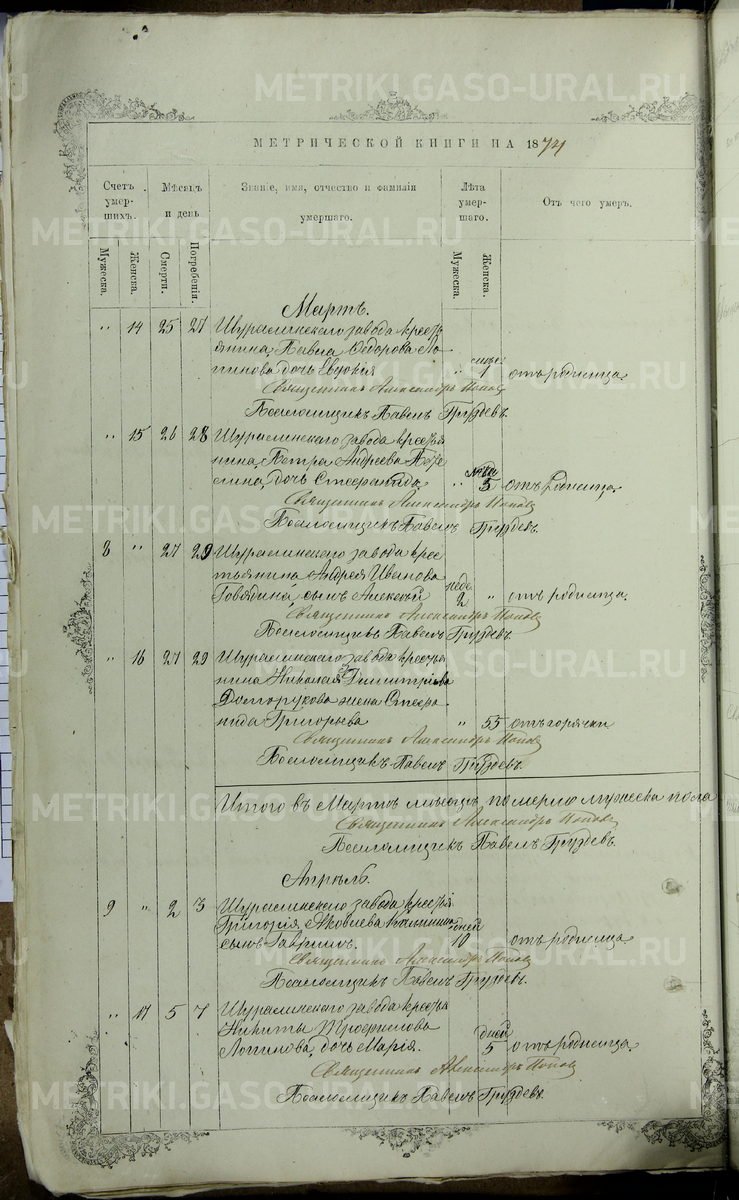 METRIKI.GASO-URAL.RU
МЕТРИЧЕСКОЙ КНИГИ НА 1874
Счетъ умер- шихъ.
Мѣсяцъ и день
Званіе, имя, отчество и фамилія умершаго.
Лѣта умер- шаго.
Отъ чего умеръ.
Мужеска.
Женска.
Смерти.
Погребенія.
Мужеска.
Женска.
Мартъ.
" 14 25 27 Шуралинскаго завода кресть
янина Павла Ѳедорова Ло
гинова дочь Евдокія " 1 отъ родимца.
Священникъ Александръ Поповъ
Псаломщикъ Павелъ Груздевъ.
" 15 26 28 Шуралинскаго завода крестья
нина, Петра Андреева
дочь Стефанида " 5 отъ родимца.
Священникъ Александръ Поповъ
Псаломщикъ Павелъ Груздевъ.
8 " 27 29 Шуралинскаго завода крес
тьянина Андрея Иванова
Говядина, сынъ Алексѣй неде. 2 " отъ родимца.
Священникъ Александръ Поповъ
Псаломщикъ Павелъ Груздевъ.
" 16 27 29 Шуралинскаго завода крестья
нина Николая Димитріева
Долгорукова жена Стефа
нида Григорьева " 55 отъ горячки
Священникъ Александръ Поповъ
Псаломщикъ Павелъ Груздевъ.
Итого въ Мартѣ мѣсяцѣ, померло мужеска пола
Священникъ Александръ Поповъ
Псаломщикъ Павелъ Груздевъ.
Апрѣль.
9 " 2 3 Шуралинскаго завода крестья
Григорія Яковлева дней
сынъ Гавріилъ. 10 отъ родимца.
Священникъ Александръ Поповъ
Псаломщикъ Павелъ Груздевъ.
" 17 5 7 Шуралинскаго завода крестья
Никиты Трофимова дней
Логинова, дочь Марія. 5 отъ родимца.
Священникъ Александръ Поповъ
Псаломщикъ Павелъ Груздевъ.